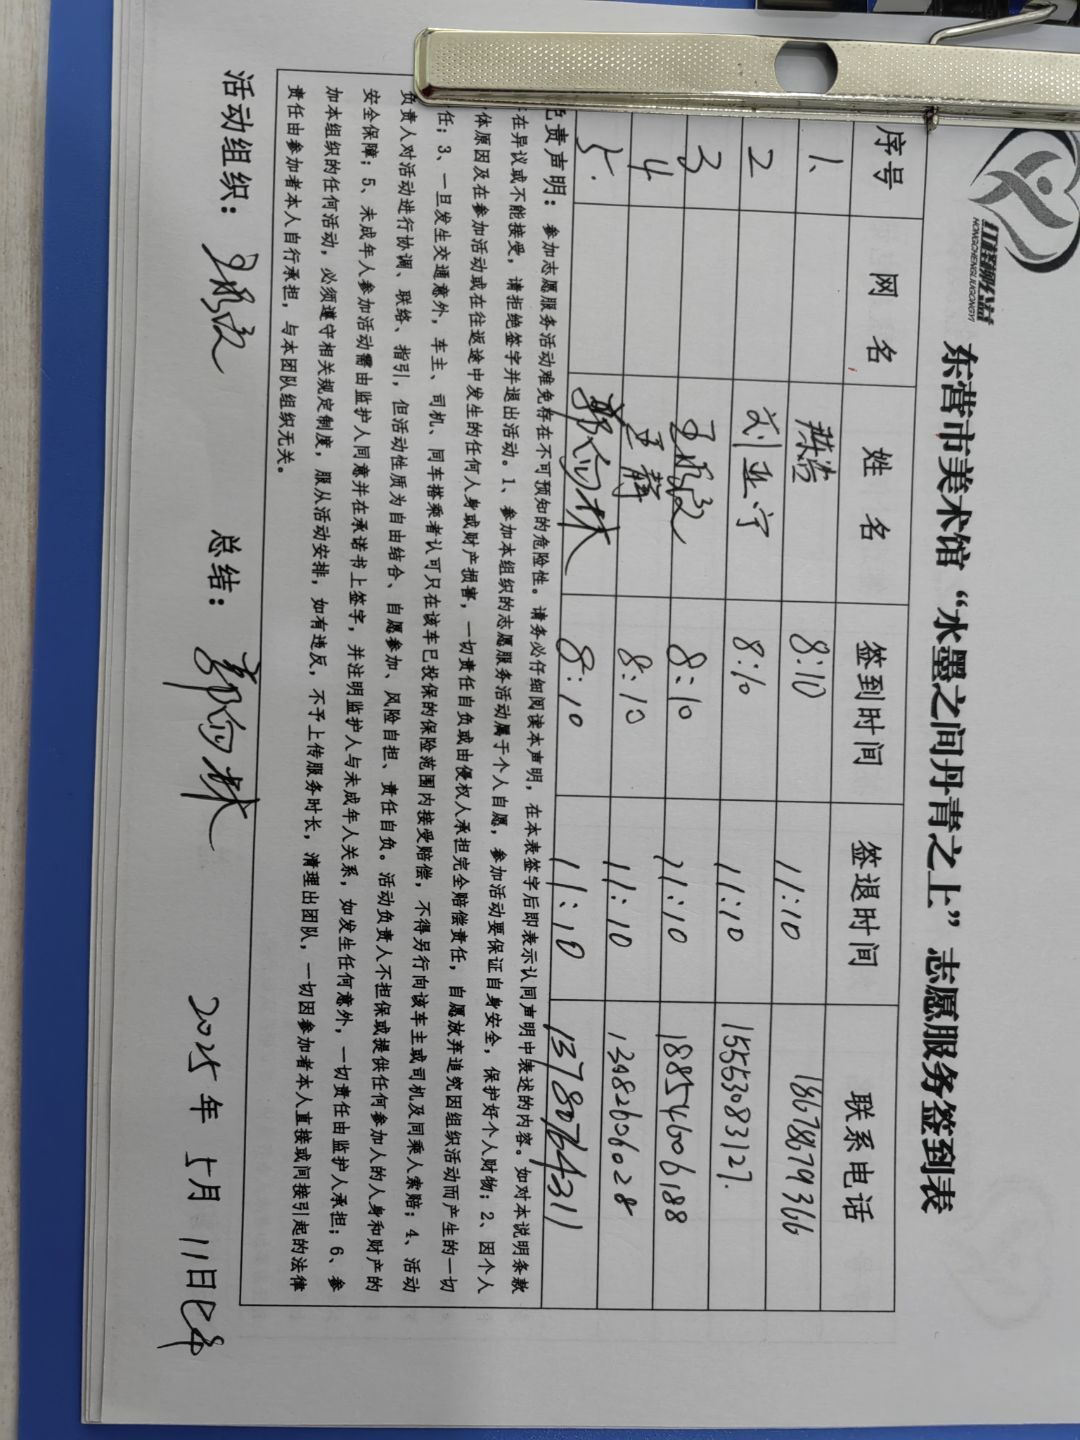 HONGCHENGLIUGONGYI
东营市美术馆“水墨之间丹青之上”志愿服务签到表
序号 网名 姓名 签到时间 签退时间 联系电话
1、 8:10 11:10 18678679366
2 刘亚宁 8:10 11:10 15553083127.
3 8:10 11:10 18854606188
4 王静 8:10 11:10
5. 8:10 11:10 13780764311
责声明：参加志愿服务活动难免存在不可预知的危险性。请务必仔细阅读本声明，在本表签字后即表示认同声明中表述的内容。如对本说明条款
在异议或不能接受，请拒绝签字并退出活动。1、参加本组织的志愿服务活动属于个人自愿，参加活动要保证自身安全，保护好个人财物；2、因个人
体原因及在参加活动或在往返途中发生的任何人身或财产损害，一切责任自负或由侵权人承担完全赔偿责任，自愿放弃追究因组织活动而产生的一切
任；3、一旦发生交通意外，车主、司机、同车搭乘者认可只在该车已投保的保险范围内接受赔偿，不得另行向该车主或司机及同乘人索赔；4、活动
负责人对活动进行协调、联络、指引，但活动性质为自由结合、自愿参加、风险自担、责任自负。活动负责人不担保或提供任何参加人的人身和财产的
安全保障；5、未成年人参加活动需由监护人同意并在承诺书上签字，并注明监护人与未成年人关系，如发生任何意外，一切责任由监护人承担；6、参
加本组织的任何活动，必须遵守相关规定制度，服从活动安排，如有违反，不予上传服务时长，清理出团队，一切因参加者本人直接或间接引起的法律
责任由参加者本人自行承担，与本团队组织无关。
活动组织： 总结： 2025年 5月 11日